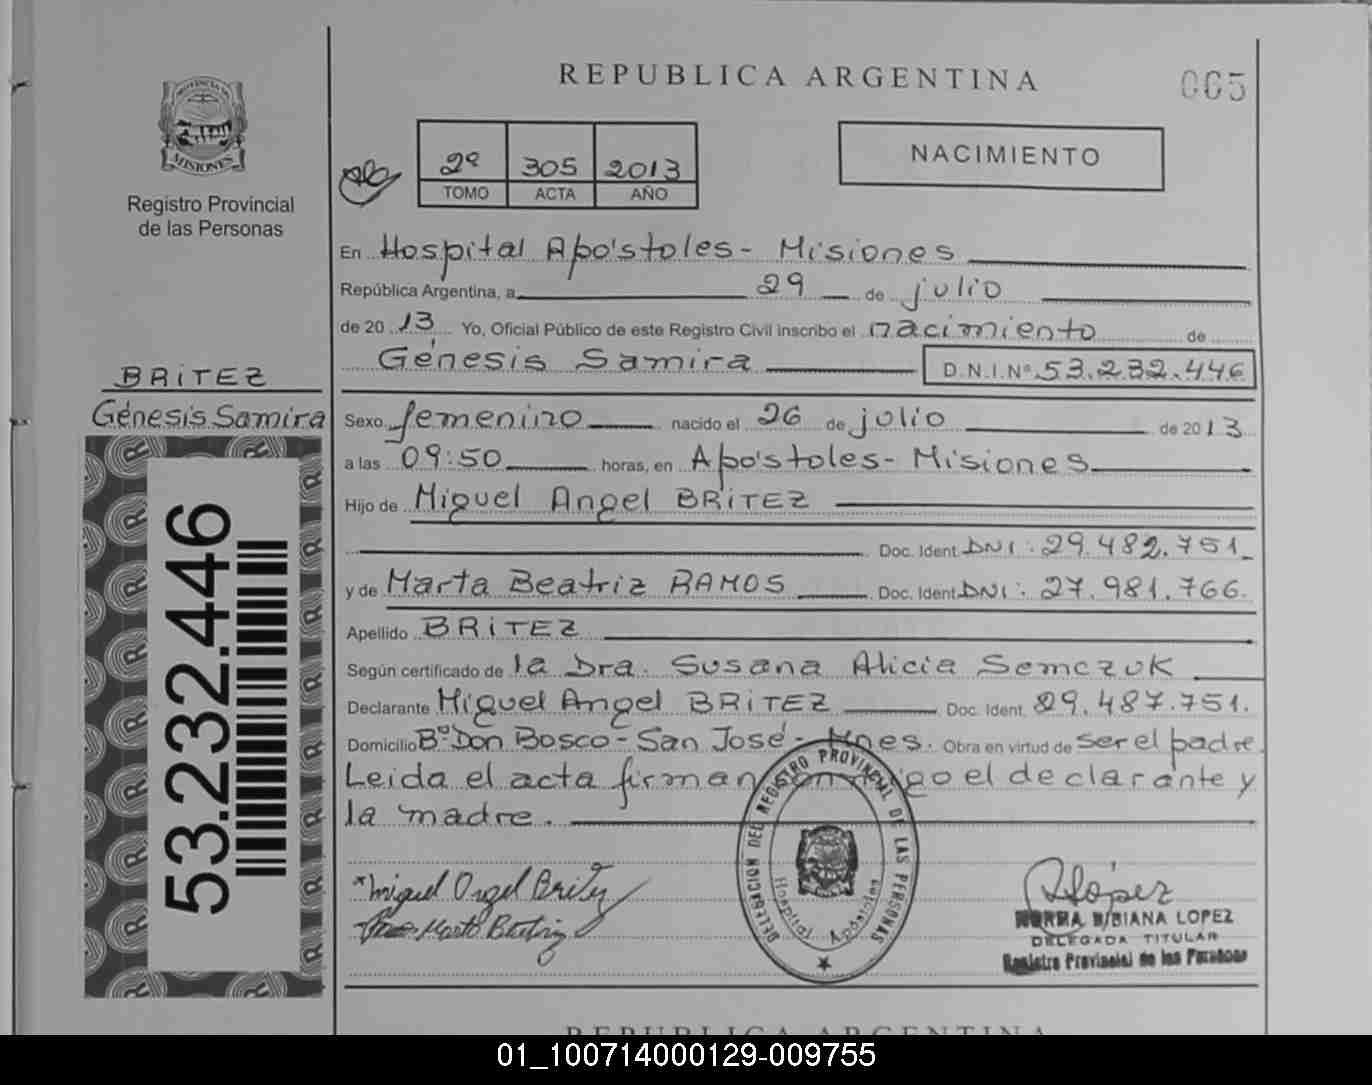 REPUBLICA ARGENTINA
065
PROVINCIA DE
MISIONES
Registro Provincial
de las Personas
2º 305 2013
TOMO ACTA AÑO
NACIMIENTO
En Hospital Apóstoles - Misiones
República Argentina, a 29 de julio
de 2013 Yo, Oficial Público de este Registro Civil inscribo el nacimiento de
Génesis Samira D.N.I.Nº 53.232.446
BRITEZ
Génesis Samira
53.232.446
Sexo femenino nacido el 26 de julio de 2013
a las 09:50 horas, en Apóstoles - Misiones
Hijo de Miguel Angel BRITEZ
Doc. Ident. DNI: 29.482.751
y de Marta Beatriz RAMOS Doc. Ident. DNI: 27.981.766.
Apellido BRITEZ
Según certificado de la Dra. Susana Alicia Semczuk
Declarante Miguel Angel BRITEZ Doc. Ident. 29.487.751.
Domicilio Bº Don Bosco - San José - Mnes. Obra en virtud de ser el padre.
Leida el acta firman conmigo el declarante y
la madre.
DELEGACION DEL REGISTRO PROVINCIAL DE LAS PERSONAS
Hospital Apóstoles
Miguel Angel Britez
Marta Beatriz
RLópez
NORMA BIBIANA LOPEZ
DELEGADA TITULAR
Registro Provincial de las Personas
REPUBLICA ARGENTINA
01_100714000129-009755